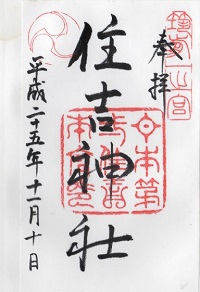 筑前一之宮
奉拝
住吉神社
平成二十五年十一月十日